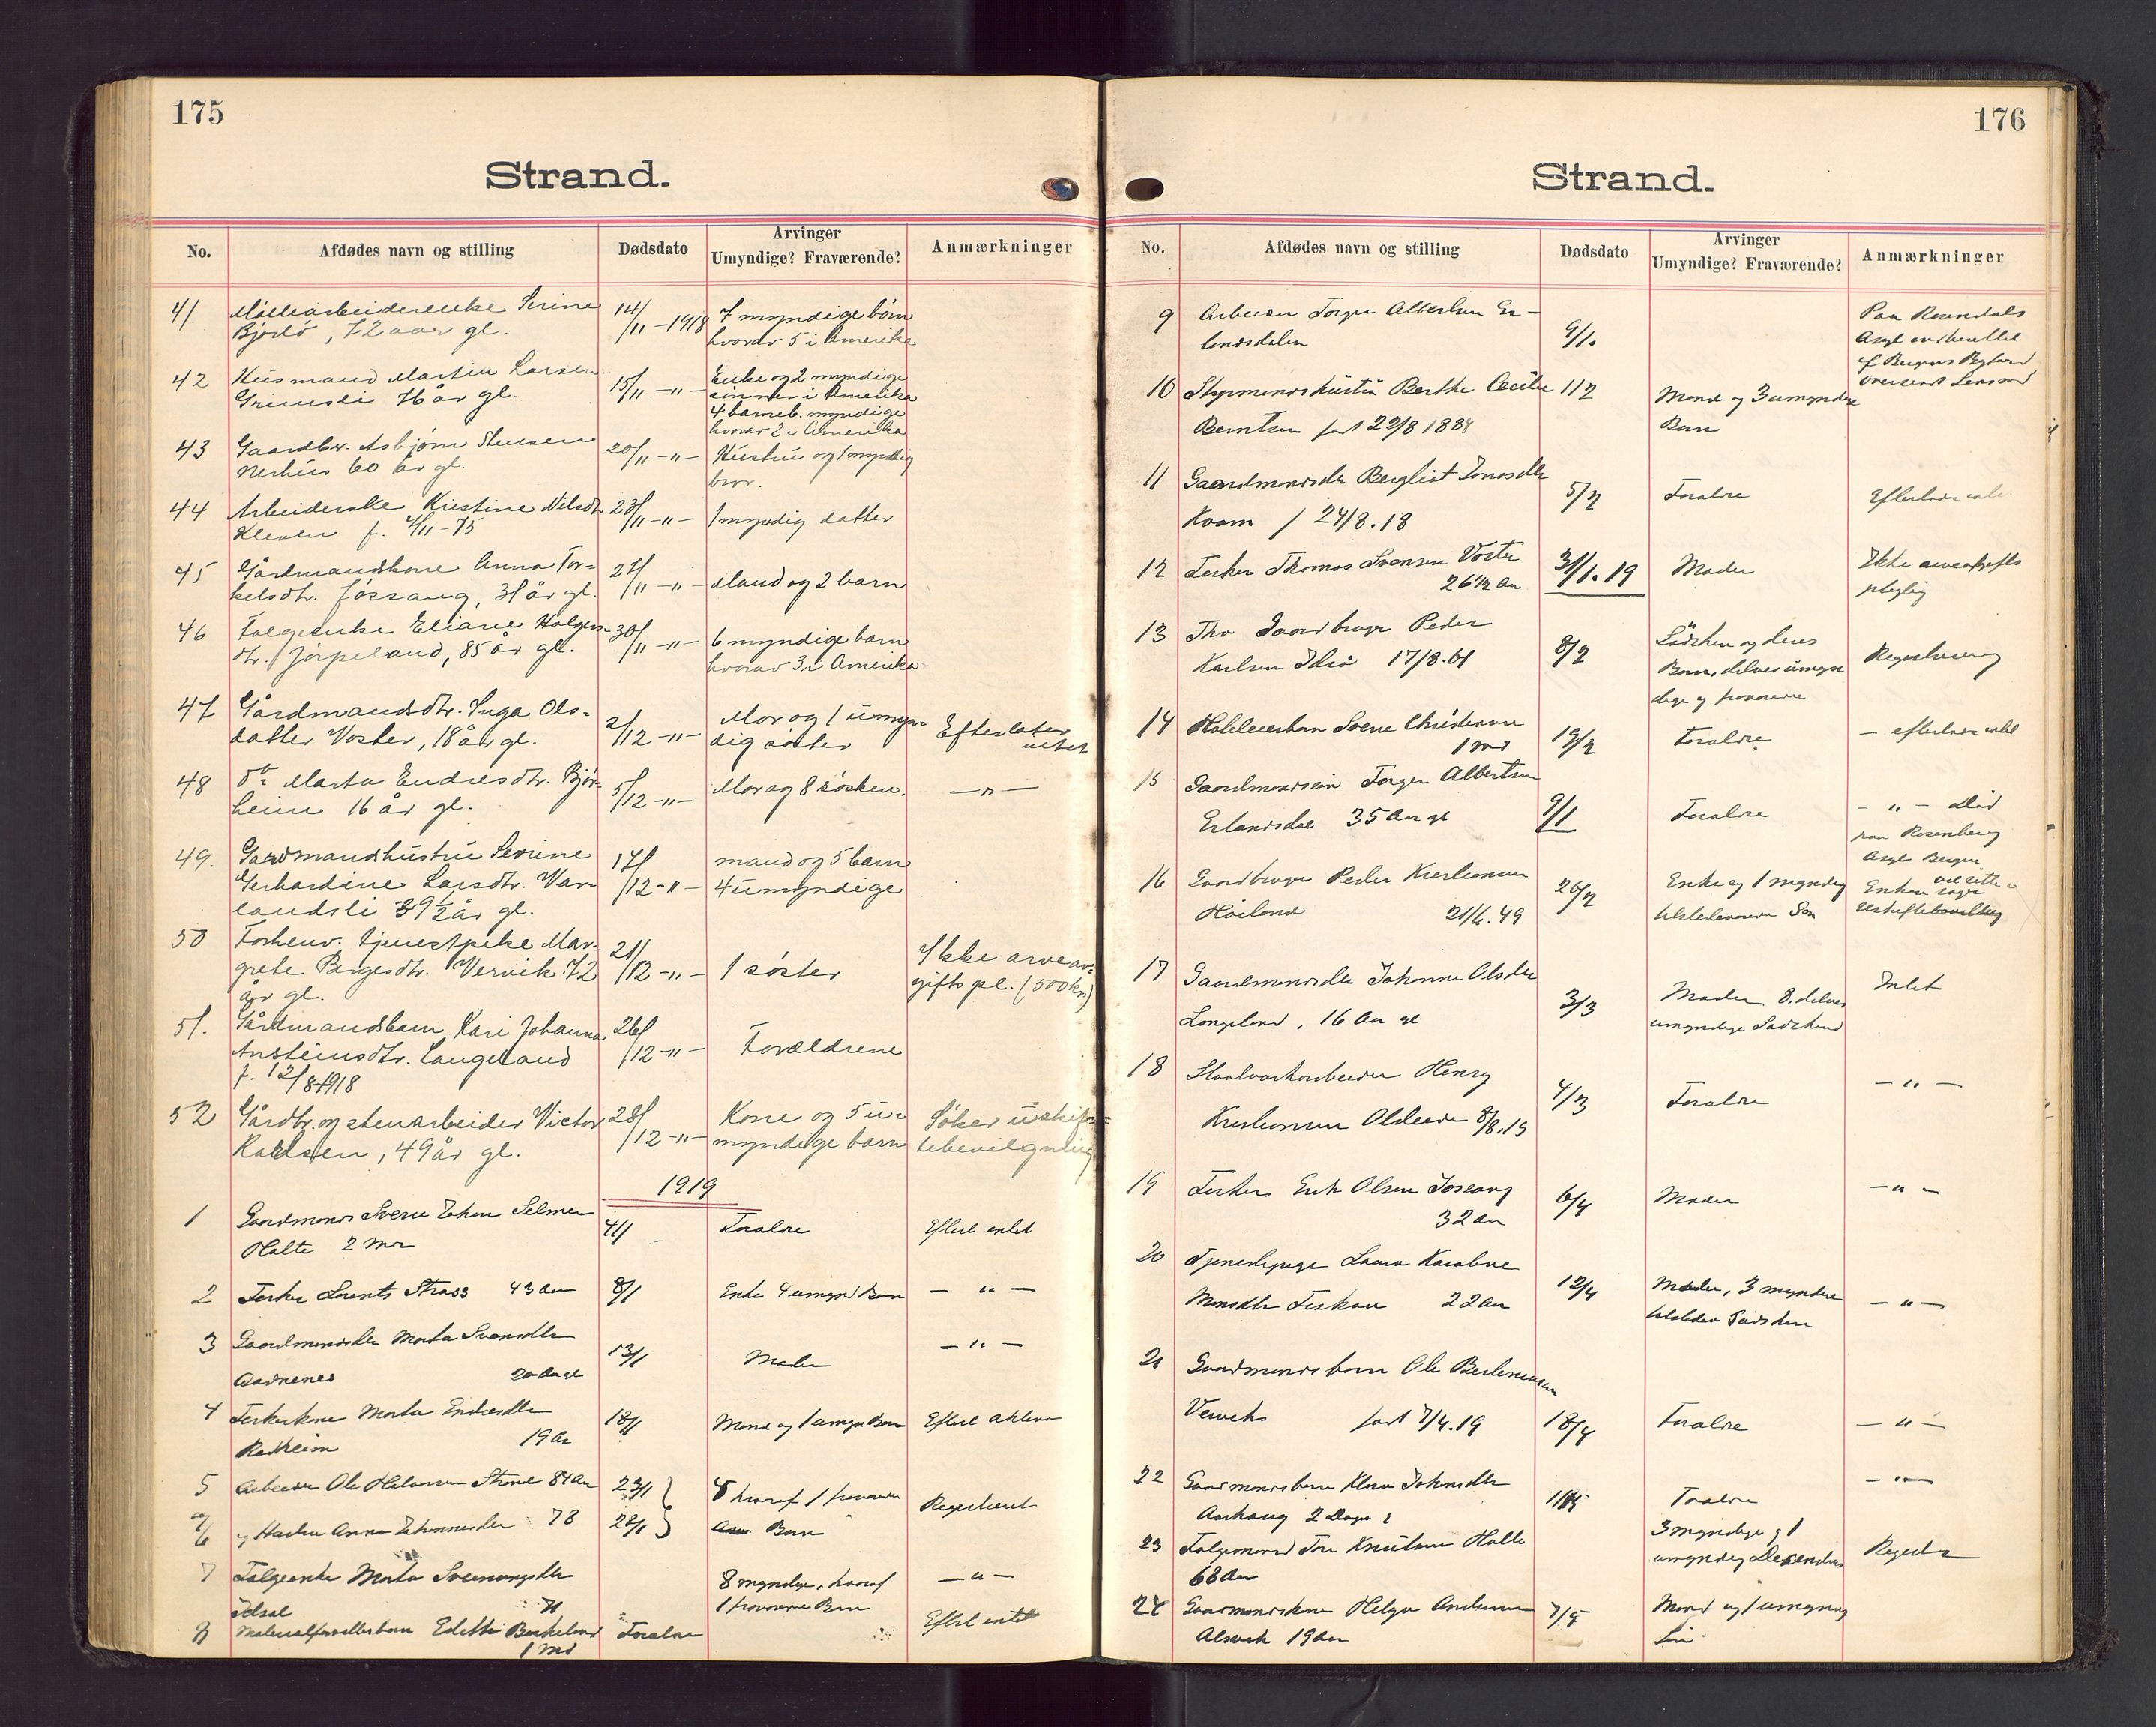 175
Strand.
No. Afdødes navn og stilling Dødsdato Arvinger Umyndige? Fraværende? Anmærkninger
41 Møllearbeiderenke Serine 14/11 - 1918 7 myndige børn
Bjørlø, 72 aar gl. hvorav 5 i Amerika
42 Husmand Martin Larsen 15/11 - " - Enke og 2 myndige
Grimsli 76 år gl. sønner i Amerika
4 barneb. myndige
hvorav 2 i Amerika
43 Gaardbr. Asbjørn 20/11 - " - Hustru og 1 myndig
Nerhus 60 år gl. bror.
44 Arbeiderske Kristine Nilsdtr. 23/11 - " - 1 myndig datter
Kleven f. /11-75
45 Gårdmandskone Anna Tor- 27/11 - " - Mand og 2 barn
kelsdtr. Jøssang, 31 år gl.
46 Folgeenke Eliane Holger- 30/11 - " - 6 myndige barn
dtr. Jørpeland, 85 år gl. hvorav 3 i Amerika
47 Gårdmandsdtr. Inga Ols- 2/12 - " - Mor og 1 umyn- Efterlater
datter Voster, 18 år gl. dig søster intet
48 Do Marta Endresdtr. Bjør- 5/12 - " - Mor og 8 søsken. - " -
heim 16 år gl.
49. Gardmandshustru Serine 17/12 - " - mand og 5 barn
Gerhardine Larsdtr. Var- 4 umyndige
landsli 39 1/2 år gl.
50 Forhenv. tjenestpike Mar- 21/12 - " - 1 søster Ikke arveav-
grete Bergesdtr. Vervik 72 giftspl. (500 kr)
år gl.
51. Gårdmandsbarn Kari Johanna 26/12 - " - Forældrene
Ansteinsdtr. Langeland
f. 12/8-1918
52 Gårdbr. og stenarbeider Victor 28/12 - " - Kone og 5 u- Søker uskif-
Karlsen, 49 år gl. myndige barn tebevilgning
1919
1 Gaardmands Johan Selmer 4/1 Forældre Efterl intet
Holte 2 Mdr
2 Fisker Lorents Strass 43 Aar 8/1 Enke 4 umynd Børn - " -
3 Gaardmandsdtr Marta Svendsdtr 13/1 Moder - " -
Aadnenes 20 Aar gl
4 Fiskerkone Marta Endresdtr 18/1 Mand og 1 umyn Barn Efterl
19 Aar
5 Arbeider Ole Halvorsen Strand 84 Aar 23/1 hvoraf 1 Registreret
6 og Hustru Anna Johannesdtr 78 28/1 Børn
7 Folgeenke Marta 8 myndige, hvoraf - " -
Idsal 71 1 fraværende Barn
8 Edith Birkeland Forældre Efterl intet
1 Md
176
Strand.
No. Afdødes navn og stilling Dødsdato Arvinger Umyndige? Fraværende? Anmærkninger
9 Arbeider Torger Albertsen Er- 9/1. Paa Rosendals
landsdalen Asyl
10 Styrmandshustru Berthe Cecilie 11/2 Mand og 3 umyndige
Berntsen født 22/8 1884 Børn
11 Gaardmandsdtr Bergliot Jonasdtr 5/2 Forældre Efterlader intet
Kvam f 24/8.18
12 Fisker Thomas Svensen Voster 31/1.19 Moder Ikke arveafgifts
26 1/2 Aar pligtig
13 Gaardbruger Peder 8/2 Sødsken og deres Registrering
Karlsen Idsø 17/8.61 Børn, delvis umyn
dige og fraværende
14 Sverre Christensen 19/2 Forældre - efterlader intet
1 Md
15 Gaardmandssøn Torger Albertsen 9/1 Forældre - " - Død
Erlandsdal 35 Aar gl paa Rosenberg
Asyl Bergen
16 Gaardbruger Peder Kristiansen 26/2 Enke og 1 myndig Enken
Høiland 21/6.49 tilstedeværende Søn uskiftebevilling
17 Gaardmandsdtr Johanne Olsdtr 3/3 Moder & delvis Intet
Langeland, 16 Aar gl umyndige Sødskend
18 Staalværksarbeider Henry 4/3 Forældre - " -
Kristiansen 8/8.19
19 Fisker Erik Olsen Jøssang 6/4 Moder - " -
32 Aar
20 Tjenestepige Laura Karoline 12/4 Moder, 3 myndige - " -
Monsdtr Fiskaa 22 Aar tilstedev Sødsken
21 Gaardmandsbarn Ole 18/4 Forældre - " -
Verviks født 7/4.19
22 Gaardmandsbarn Johnsdtr Forældre - " -
Aarhaug 2 Dage
23 Folgemand Tore Knutsen Holte 3 myndige og 1 Registr
68 Aar umyndig
24 Gaardmandskone Helga Andersen 7/5 Mand og 1 umyndig
Alsvik 19 Aar Søn